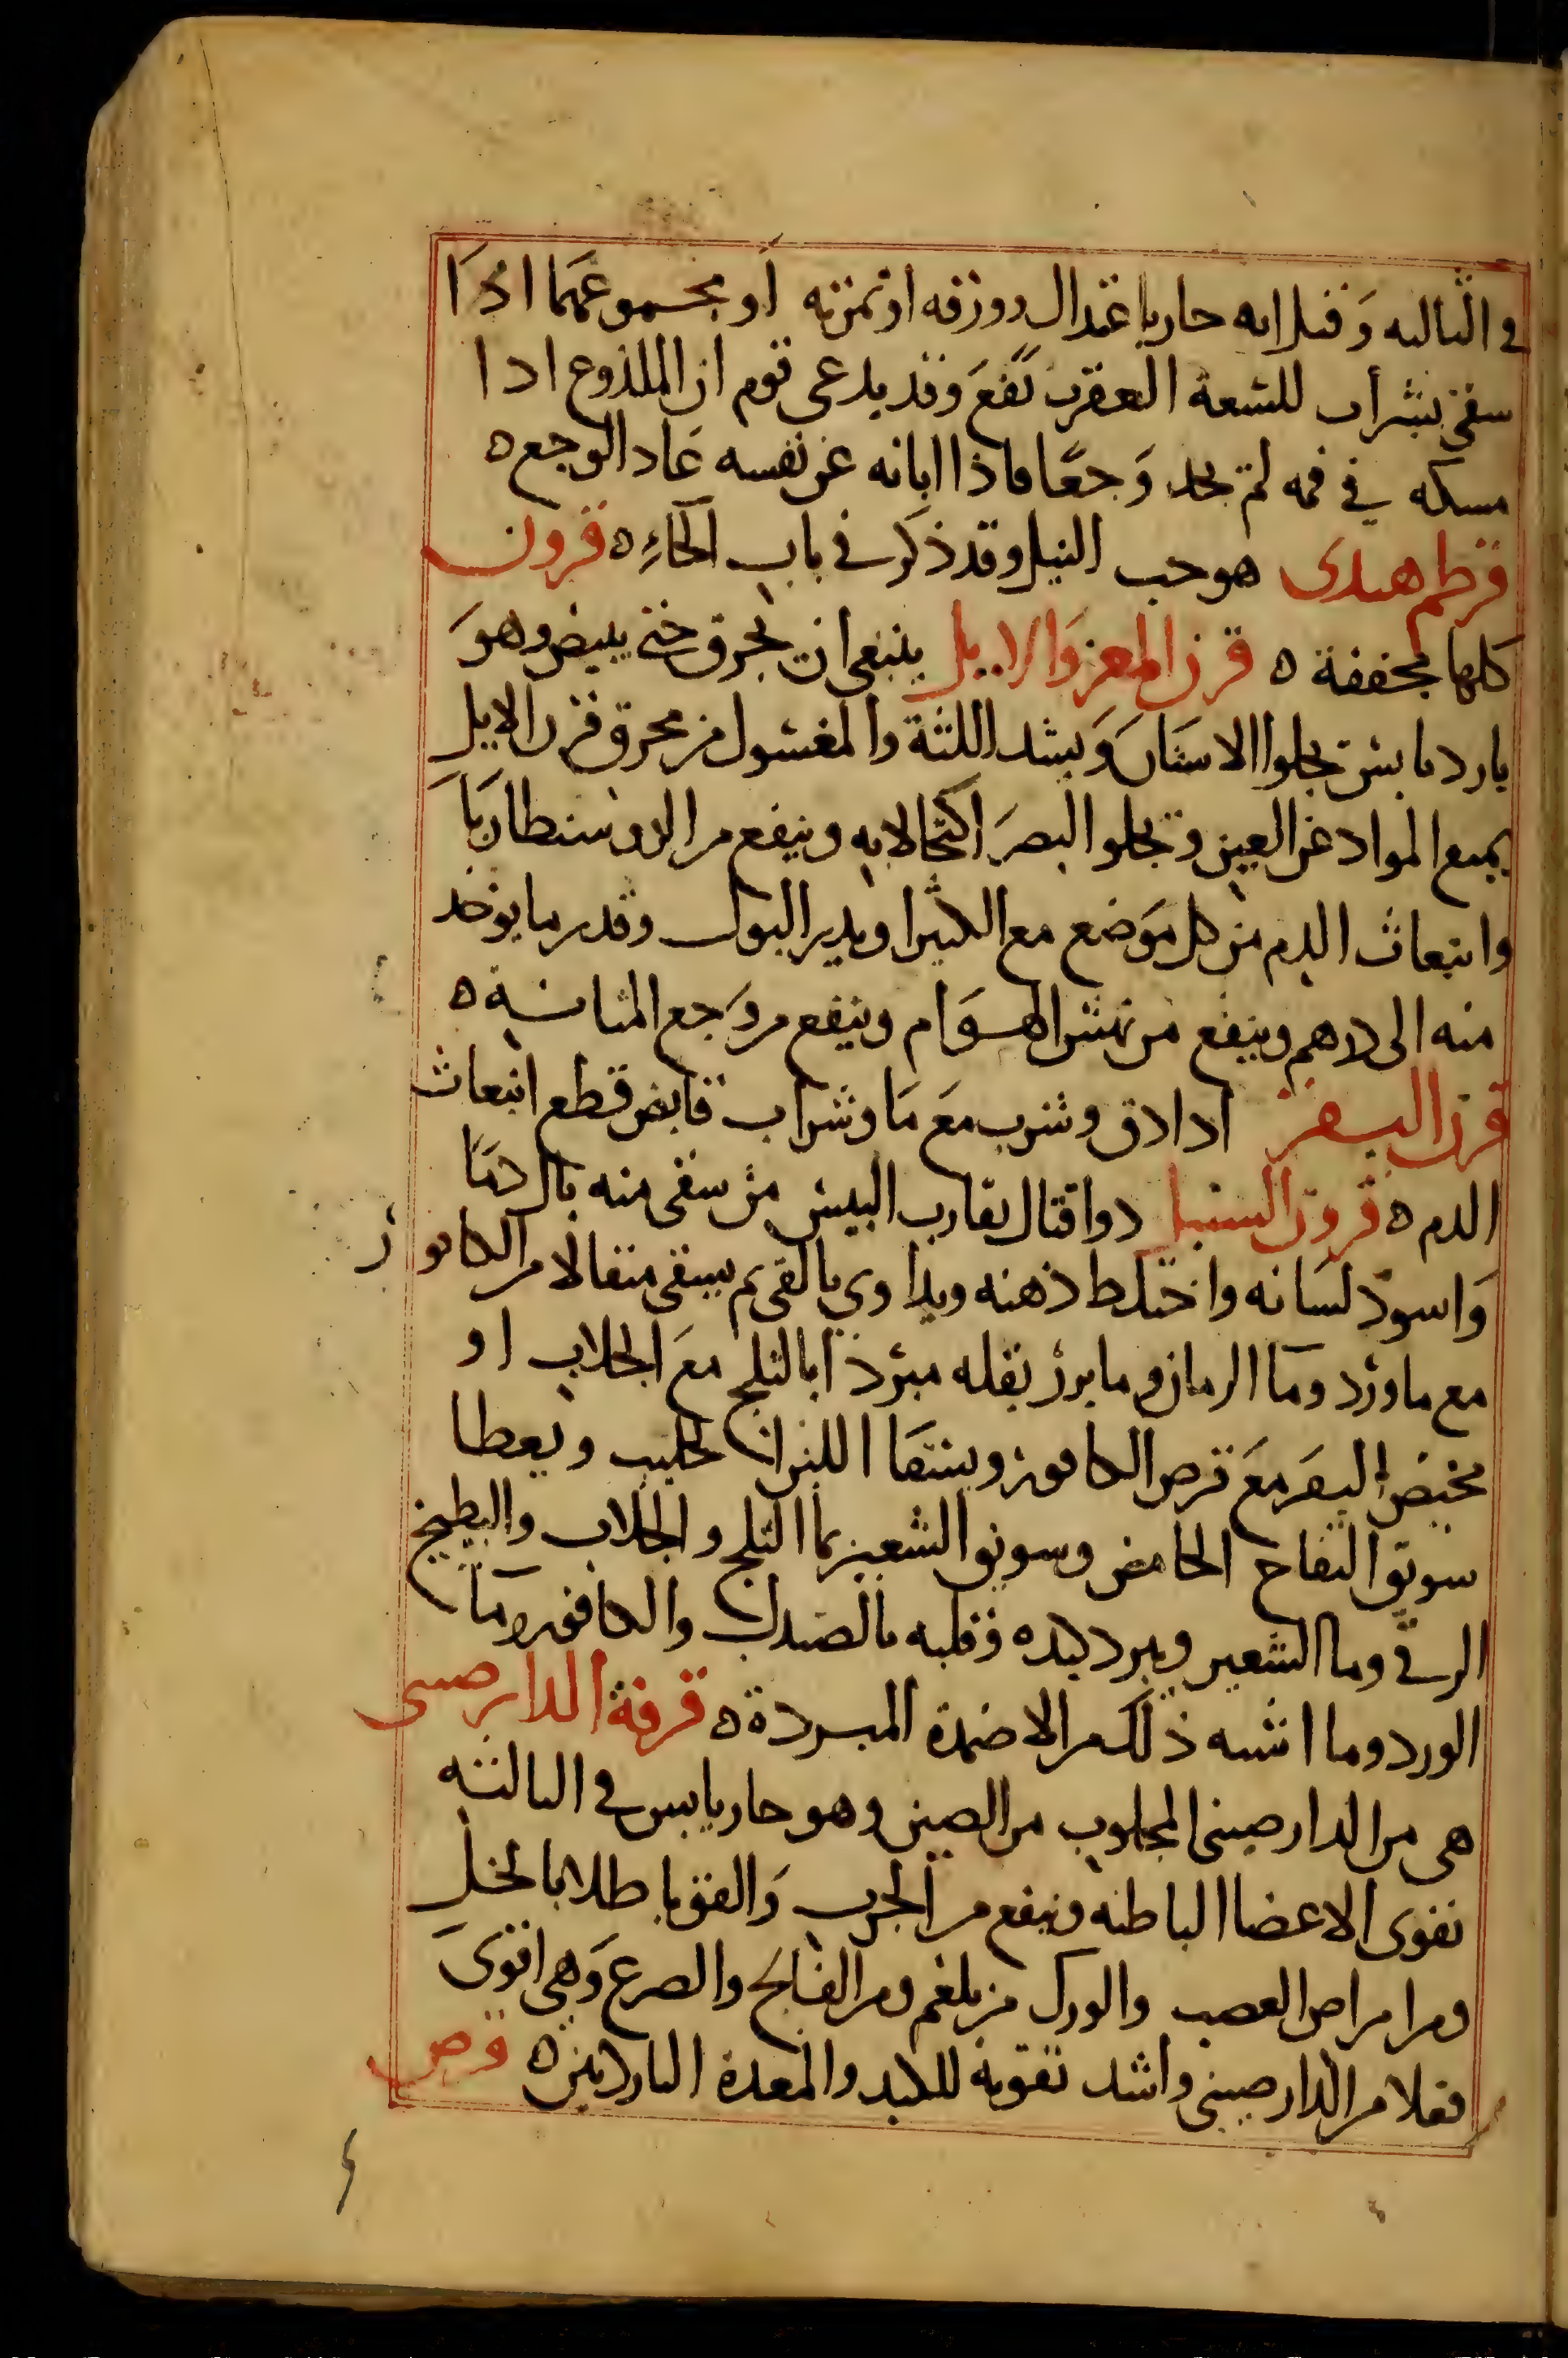 في الثالثه وَقيل انه حار باعتدال وورقه او ثمرته أو مجموعهما اذَا
سقي بشرأب للسعة العقرب نَفعَ وقد يدعى قوم ان الملذوع اذا
مسكه في فمه لم يجد وَجعًا فاذا ابانه عن نفسه عَاد الوجع ه
قرطم هندى هو حب النيل وقد ذكر في باب الحاءِ ه قرون
كلها مجففة ه قرن المعز وَالايل ينبغي ان تحرق حتى يبيض وهوَ
بارد يابس يجلوا الاسنانَ وَيشد اللثة والمغسول من محرق قرن الايل
يمنع المواد عن العين ويجلو البصرَ اكتحالا به وينفع من الدوسنطاريَا
وانبعاث الدم من كل مَوضع مع الكثيرا ويدير البول وقدر ما يوخد
منه الى درهم وينفع من نهش الهوَام وينفع من وَجع المثانة ه
قرن البقر اذا دق وشرب مَع مَا وشراب قابض قطع انبعاث
الدم ه قرون السنبل دوا قتال يقارب البيش من سقي منه بال دمًا
وَاسودّ لسَانه واختلط ذهنه ويداوي بالقي ثم يسقى مثقالا من الكافور
مع ماورْد ومَا الرمان وما بزر بقله مبرّدًا بالثلج مَع الجلاب او
مخيض البقر مَع قرص الكافور ويسقَا اللبن الحليب ويعطا
سويق التفاح الحامض وسويق الشعير بما الثلج والجلاب والبطيخ
الرقي وما الشعير ويبرد كبده وقلبه بالصندل والكافور ومَا
الورد وما اشبه ذلك من الاضمدة المبردة ه قرفة الدارصيني
هى من الدارصينى المجلوب من الصين وهو حار يابس في الثالثه
تقوى الاعضا الباطنه وينفع من الجرب وَالقوبا طلا بالخل
ومن امراض العصب والورك من بلغم ومن الفالج والصرع وَهي اقوىَ
فعلا من الدارصيني واشد تقوية للكبد والمعدة الباردتين ه قرص